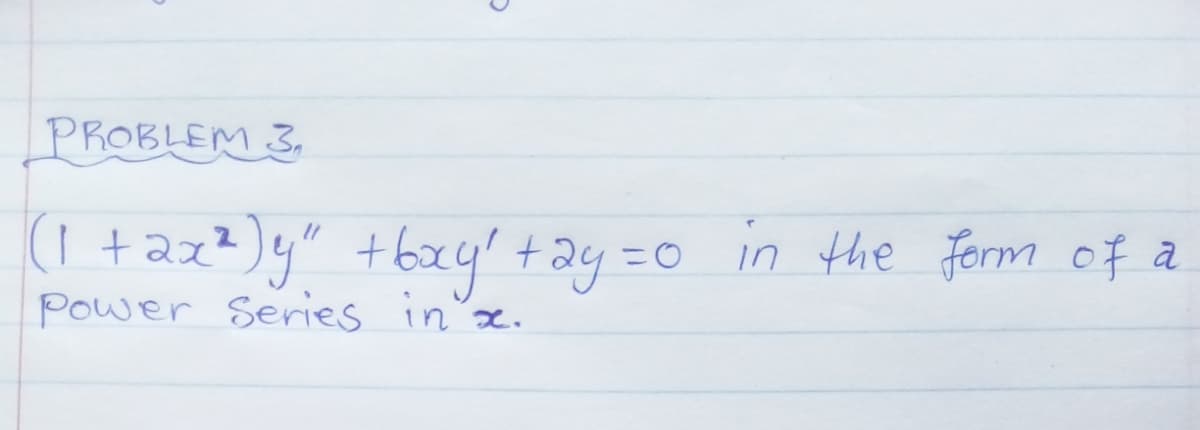 PROBLEM 3.
(1 + 2x²)y" + 6xy' + 2y = 0 in the form of a
power series in x.